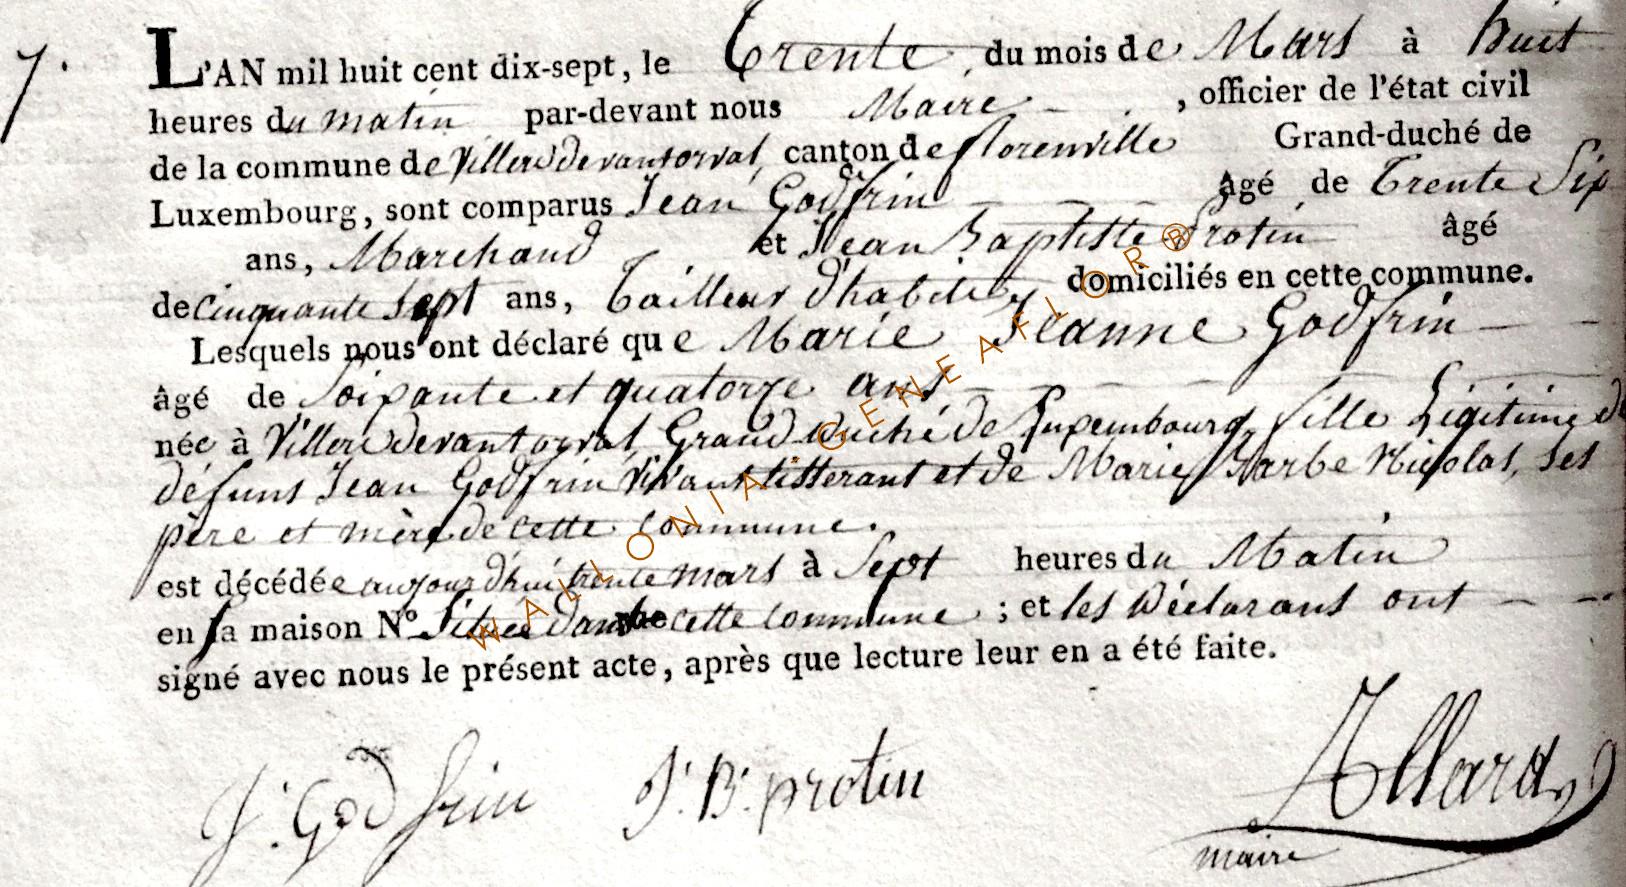 7.
L'AN mil huit cent dix-sept, le Trente, du mois de Mars à huit
heures du matin par-devant nous Maire - , officier de l'état civil
de la commune de Villersdevantorval, canton de florenville Grand-duché de
Luxembourg, sont comparus Jean Godfrin - - - âgé de Trente Six
ans, Marchand et Jean Baptiste Protin âgé
de cinquante Sept ans, Tailleur d'habits, domiciliés en cette commune.
Lesquels nous ont déclaré que Marie Jeanne Godfrin - -
âgé de Soixante et quatorze ans - - -
née à Villersdevantorval, Grand Duché de Luxembourg, fille Légitime de
défuns Jean Godfrin Vivant tisserant et de Marie Barbe Nicolas, ses
père et mère de cette Commune.
est décédée aujourd'hui trente mars à Sept heures du Matin
en sa maison N° Située dans cette Commune ; et les Déclarans ont - -
signé avec nous le présent acte, après que lecture leur en a été faite.
J. Godfrin J. B. protin Allard
maire
WALLONIA GENEAFLOR®